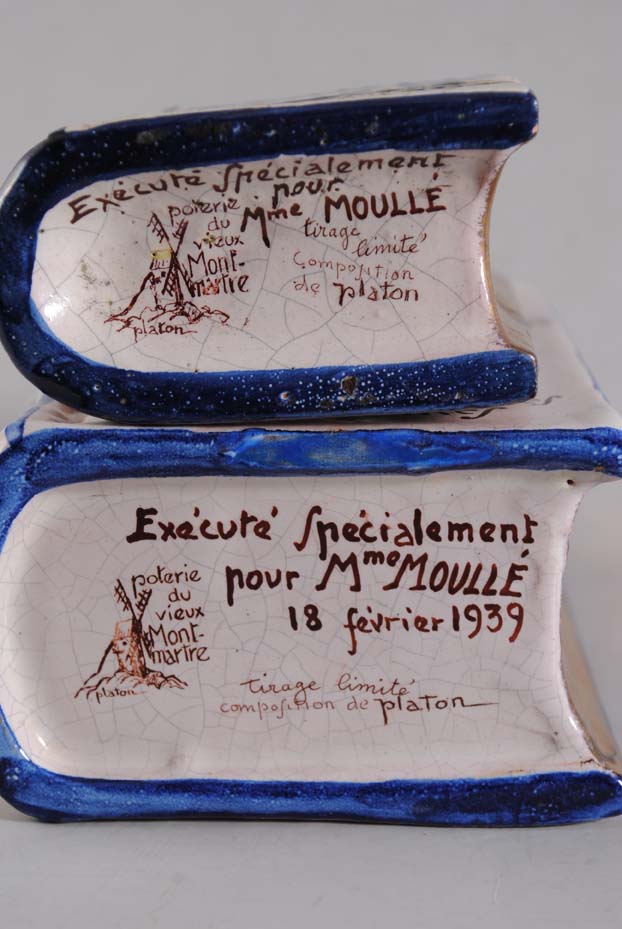 Exécuté Spécialement
pour
Mme MOULLÉ
poterie
du
vieux
Mont-
martre
platon
tirage
limité
composition
de platon
Exécuté Spécialement
pour Mme MOULLÉ
18 février 1939
poterie
du
vieux
Mont-
martre
platon
tirage limité
composition de platon